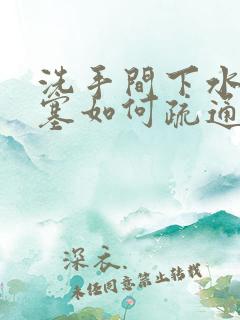 洗手間下水
塞如何疏通
深衣.
未經同意禁止轉載